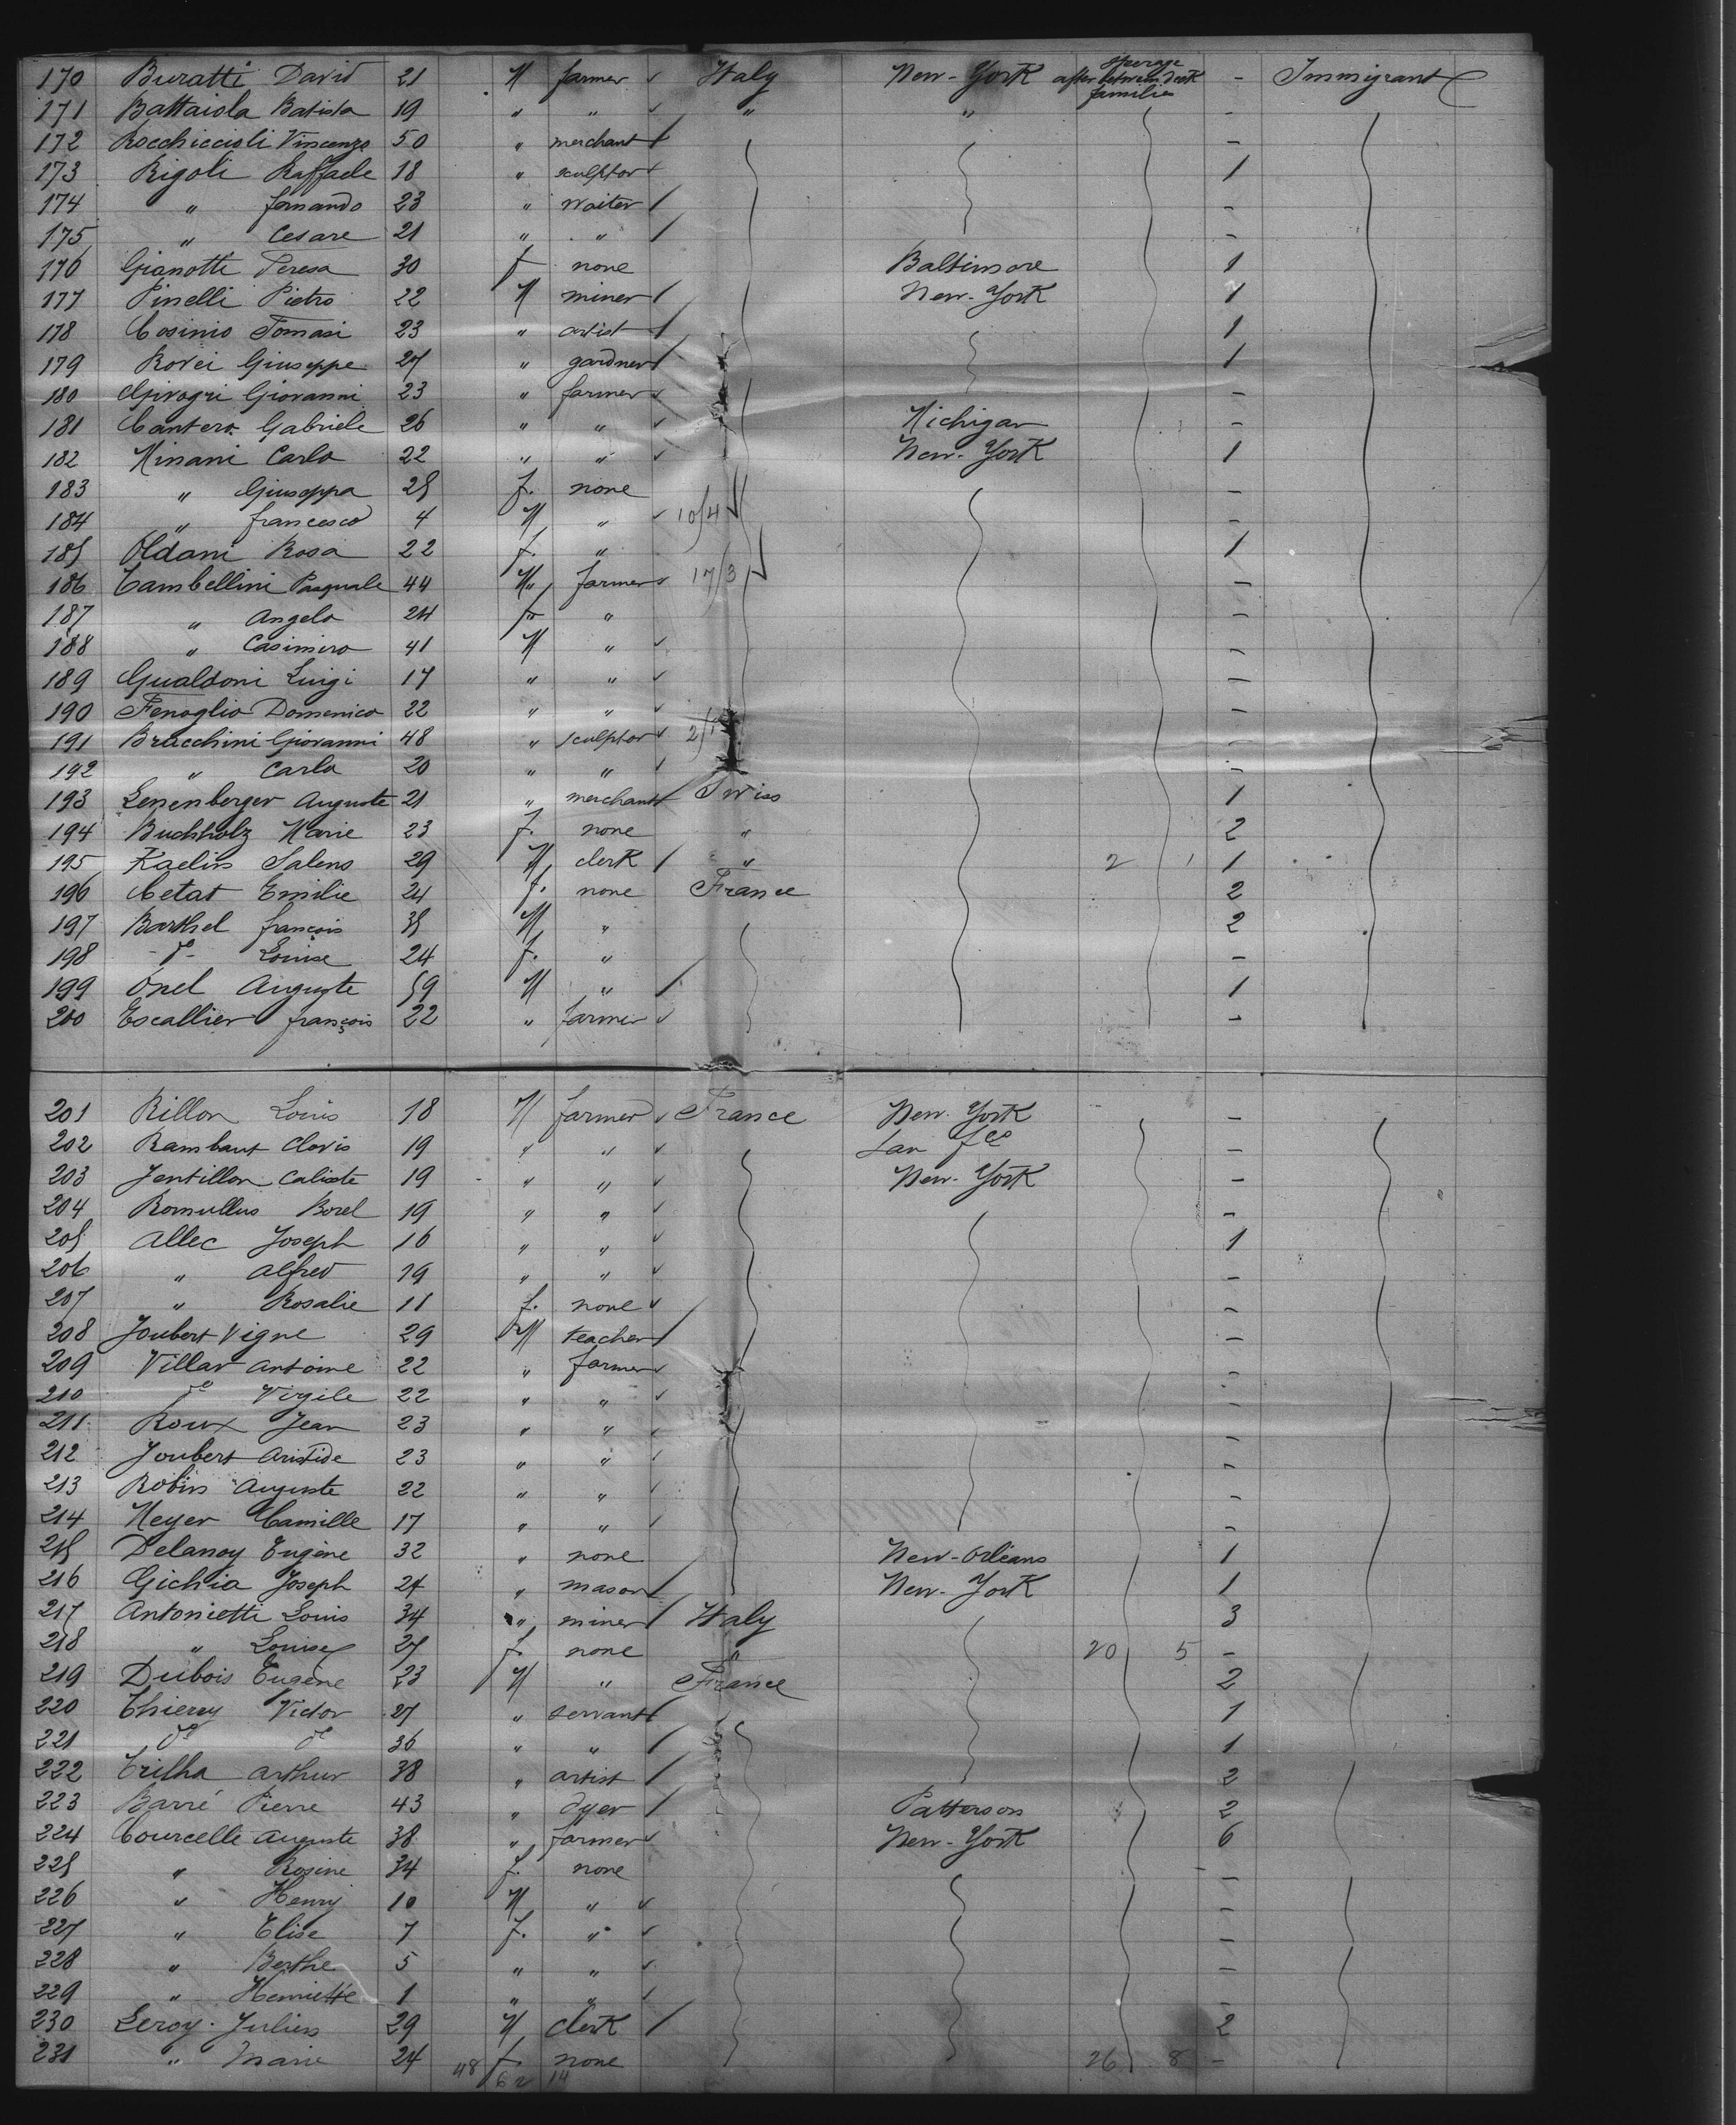 170 Buratti David 21 M farmer Italy New-York steerage after between deck families - Immigrant
171 Battaiola Batista 19 " " " " -
172 Rocchiccioli Vincenzo 50 " merchant -
173 Rigoli Raffaele 18 " sculptor 1
174 " fernando 23 " waiter -
175 " Cesare 21 " " -
176 Gianotti Teresa 30 f none Baltimore 1
177 Pinelli Pietro 22 M miner New-York 1
178 Cosinio Tomasi 23 " artist 1
179 Rovei Giuseppe 27 " gardner 1
180 Giovanni 23 " farmer -
181 Cantero Gabriele 26 " " Michigan -
182 Minani Carlo 22 " " New-York 1
183 " Giuseppa 25 f. none -
184 " francesco 4 M " 10/4 -
185 Oldani Rosa 22 f. " 1
186 Tambellini Pasquale 44 M farmer 17/3 -
187 " Angelo 24 f " -
188 " Casimiro 41 M " -
189 Gualdoni Luigi 17 " " -
190 Fenoglio Domenico 22 " " -
191 Bracchini Giovanni 48 " sculptor 2/1 -
192 " Carlo 20 " " -
193 Lenenberger Auguste 21 " merchant Swiss 1
194 Buchholz Marie 23 f. none " 2
195 Kaelin Salens 29 M clerk " 2 1 1
196 Cetat Emilie 24 f. none France 2
197 Barthel françois 35 M " 2
198 -do- Louise 24 f. " -
199 Onel Auguste 59 M " 1
200 Escallier françois 22 " farmer -
201 Rillon Louis 18 M farmer France New-York -
202 Rambaut Clovis 19 " " San Fco -
203 Jentillon Calixte 19 " " New-York -
204 Romullus Borel 19 " " -
205 Allec Joseph 16 " " 1
206 " Alfred 19 " " -
207 " Rosalie 11 f. none -
208 Joubert Vigne 29 M teacher -
209 Villar Antoine 22 " farmer -
210 do Virgile 22 " " -
211 Roux Jean 23 " " -
212 Joubert Aristide 23 " " -
213 Robin Auguste 22 " " -
214 Meyer Camille 17 " " -
215 Delanoy Eugène 32 " none New-Orléans 1
216 Gichia Joseph 24 " mason New-York 1
217 Antonietti Louis 34 " miner Italy 3
218 " Louise 27 f. none " 20 5 -
219 Dubois Eugène 23 M " France 2
220 Thierry Victor 27 " servant 1
221 do do 36 " " 1
222 Trilha Arthur 38 " artist 2
223 Barré Pierre 43 " dyer Patterson 2
224 Courcelle Auguste 38 " farmer New-York 6
225 " Rosine 34 f. none -
226 " Henry 10 M " -
227 " Elise 7 f. " -
228 " Berthe 5 " " -
229 " Henriette 1 " " -
230 Leroy Julien 29 M clerk 2
231 " Marie 24 f. none 26 8 -
48 62 14